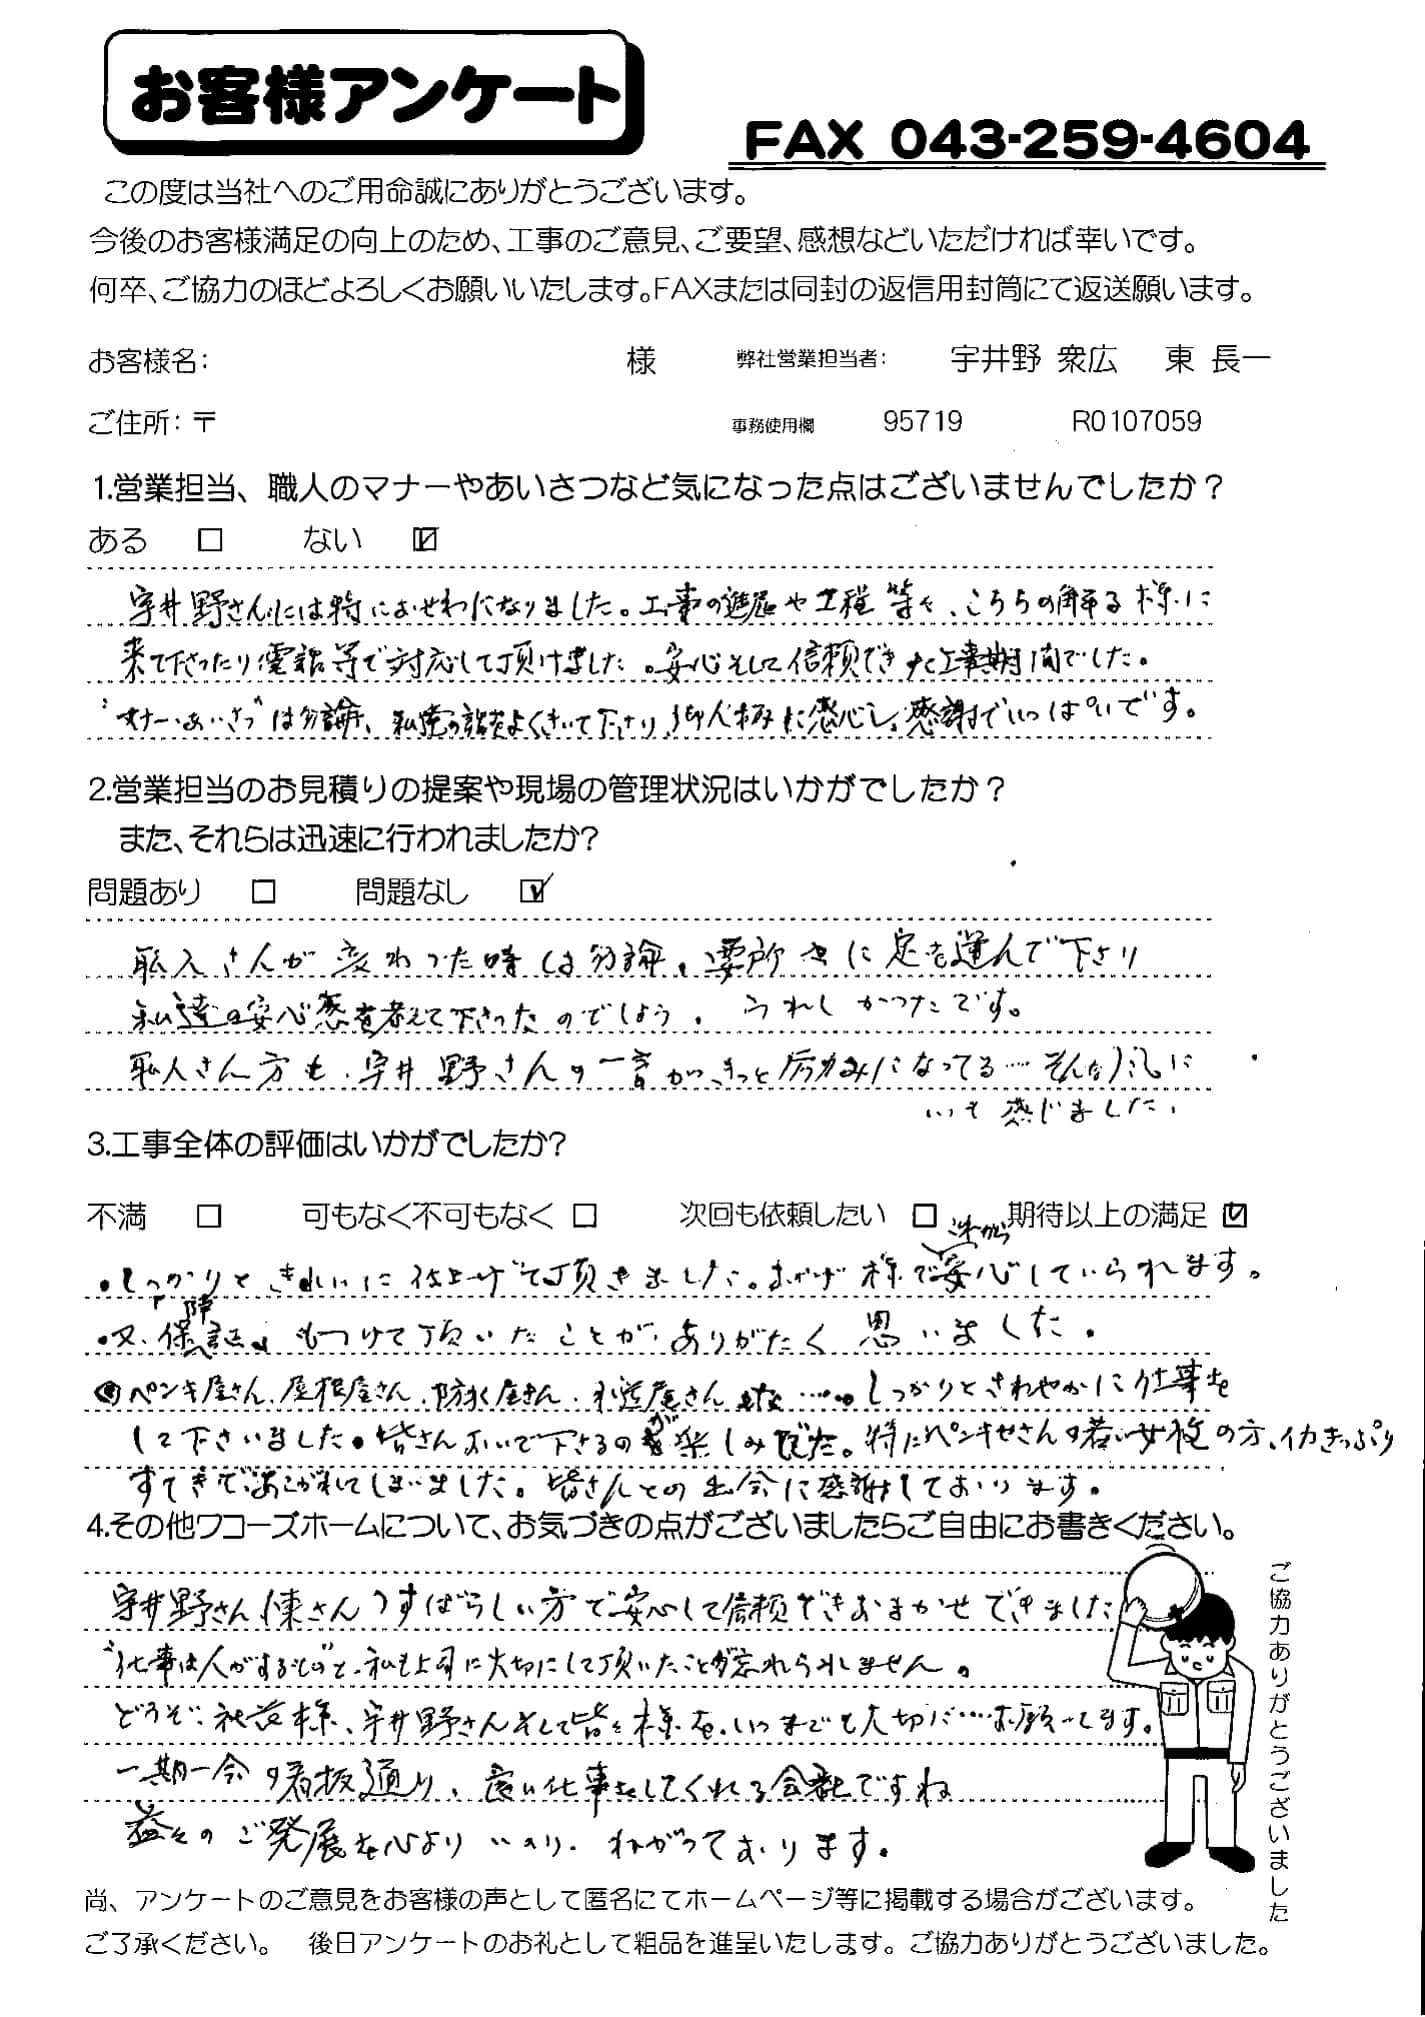 お客様アンケート
FAX 043-259-4604
この度は当社へのご用命誠にありがとうございます。
今後のお客様満足の向上のため、工事のご意見、ご要望、感想などいただければ幸いです。
何卒、ご協力のほどよろしくお願いいたします。FAXまたは同封の返信用封筒にて返送願います。
お客様名: 様 弊社営業担当者: 宇井野 衆広 東 長一
ご住所:〒 事務使用欄 95719 R0107059
1.営業担当、職人のマナーやあいさつなど気になった点はございませんでしたか?
ある □ ない ☑
宇井野さんには特におせわになりました。工事の進展や工程等を、こちらの解る様に
来て下さったり電話等で対応して頂けました。安心そして信頼できた工事期間でした。
"マナー、あいさつ"は勿論、私達の話をよくきいて下さり、職人極に感心し、感謝でいっぱいです。
2.営業担当のお見積りの提案や現場の管理状況はいかがでしたか?
また、それらは迅速に行われましたか?
問題あり □ 問題なし ☑
職人さんが変わった時は勿論、要所々に足を運んで下さり
私達の安心感を考えて下さったのでしょう。うれしかったです。
職人さん方も、宇井野さんの一言がきっと励みになってる…そんな風に
いつも感じました。
3.工事全体の評価はいかがでしたか?
不満 □ 可もなく不可もなく □ 次回も依頼したい □ 期待以上の満足 ☑
・しっかりときれいに仕上げて頂きました。おかげ様でこれから安心していられます。
・又、「保証」もつけて頂いたことがありがたく思いました。
◎ペンキ屋さん、屋根屋さん、防水屋さん、水道屋さん など……しっかりとさわやかに仕事を
して下さいました。皆さんおいで下さるのが楽しみでした。特にペンキやさんの若い女性の方、イカきっぷり
すてきであこがれてしまいました。皆さんとの出会に感謝しております。
4.その他ワコーズホームについて、お気づきの点がございましたらご自由にお書きください。
宇井野さん(東さん)すばらしい方で安心して信頼できおまかせできました
"仕事は人がするもの"と、私も上司に大切にして頂いたことが忘れられません。
どうぞ、社長様、宇井野さんそして皆々様を、いつまでも大切に…お願いします。
一期一会の看板通り、良い仕事をしてくれる会社ですね
益々のご発展を心よりいのり、ねがっております。
ご協力ありがとうございました
尚、アンケートのご意見をお客様の声として匿名にてホームページ等に掲載する場合がございます。
ご了承ください。 後日アンケートのお礼として粗品を進呈いたします。ご協力ありがとうございました。